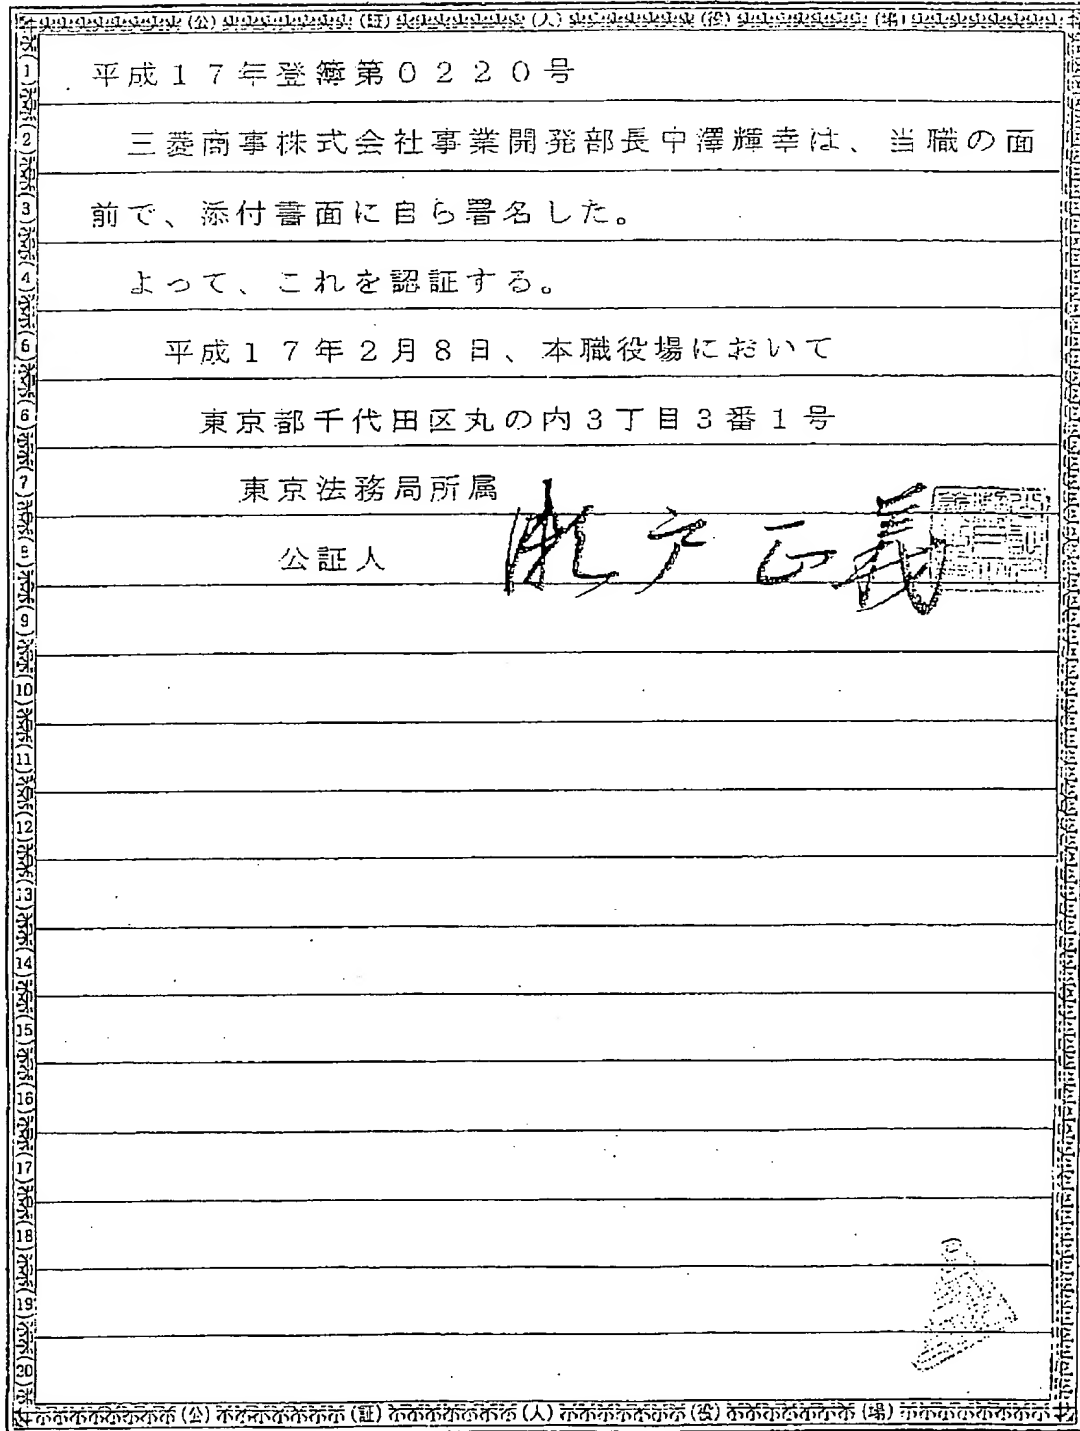 (公) (証) (人) (役) (場)
平成17年登簿第0220号
三菱商事株式会社事業開発部長中澤輝幸は、当職の面
前で、添付書面に自ら署名した。
よって、これを認証する。
平成17年2月8日、本職役場において
東京都千代田区丸の内3丁目3番1号
東京法務局所属
公証人
正義
(1)
(2)
(3)
(4)
(5)
(6)
(7)
(8)
(9)
(10)
(11)
(12)
(13)
(14)
(15)
(16)
(17)
(18)
(19)
(20)
(公) (証) (人) (役) (場)